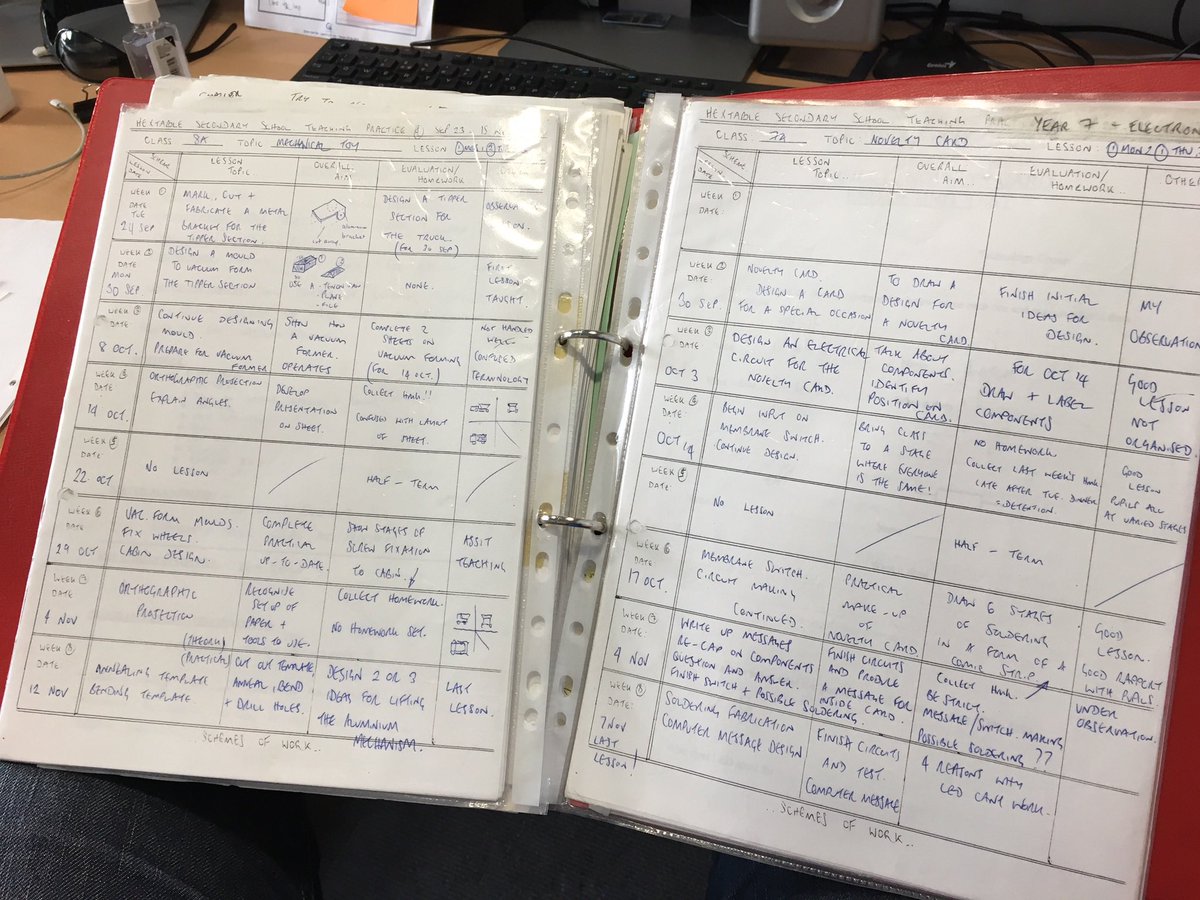 HEXTABLE SECONDARY SCHOOL TEACHING PRACTICE SEP 23
CLASS 8A TOPIC MECHANICAL TOY LESSON
SCHEME
LESSON DATE
LESSON TOPIC
OVERALL AIM
EVALUATION/ HOMEWORK
WEEK 1
DATE
TUE
24 SEP
MARK, CUT +
FABRICATE A METAL
BRACKET FOR THE
TIPPER SECTION.
aluminium
bracket
cut away
DESIGN A TIPPER
SECTION FOR
THE TRUCK
(FOR 30 SEP)
OBSERVATION.
WEEK 2
DATE
MON
30 SEP.
DESIGN A MOULD
TO VACUUM FORM
THE TIPPER SECTION
USE A -TENON SAW
-PLANE
-FILE
NONE.
FIRST
LESSON
TAUGHT.
WEEK 3
DATE
8 OCT.
CONTINUE DESIGNING
MOULD.
PREPARE FOR VACUUM
FORMER
SHOW HOW
A VACUUM
FORMER
OPERATES
COMPLETE 2
SHEETS ON
VACUUM FORMING
(FOR 14 OCT.)
NOT HANDLED
WELL
CONFUSED
TERMINOLOGY
WEEK
DATE
14 OCT.
ORTHOGRAPHIC PROJECTION
EXPLAIN ANGLES.
DEVELOP
PRESENTATION
ON SHEET.
COLLECT H/WK!!
CONFUSED WITH LAYOUT
OF SHEET.
WEEK 5
DATE
22 OCT
NO LESSON
HALF - TERM
WEEK 6
DATE
29 OCT
VAC. FORM MOULDS.
FIX WHEELS.
CABIN DESIGN.
COMPLETE
PRACTICAL
UP-TO-DATE.
SHOW STAGES OF
SCREW FIXATION
TO CABIN.
ASSIT
TEACHING
WEEK 7
DATE
4 NOV
ORTHOGRAPHIC
PROJECTION
(THEORY)
RECOGNISE
SET UP OF
PAPER +
TOOLS TO USE.
COLLECT HOMEWORK.
NO HOMEWORK SET.
WEEK 8
DATE
12 NOV
(PRACTICAL)
ANNEALING TEMPLATE
BENDING TEMPLATE
CUT OUT TEMPLATE,
ANNEAL, BEND
+ DRILL HOLES.
DESIGN 2 OR 3
IDEAS FOR LIFTING
THE ALUMINIUM
MECHANISM.
LAST
LESSON.
..SCHEMES OF WORK..
HEXTABLE SECONDARY SCHOOL TEACHING PRAC YEAR 7 + ELECTRON
CLASS 7A TOPIC NOVELTY CARD LESSON: 1 MON 2 1 THU
SCHEME
DATE
LESSON
TOPIC...
OVERALL
AIM...
EVALUATION/
HOMEWORK..
OTHE
WEEK 1
DATE:
WEEK 2
DATE:
30 SEP.
NOVELTY CARD
DESIGN A CARD
FOR A SPECIAL OCCASION
TO DRAW A
DESIGN FOR
A NOVELTY
CARD
FINISH INITIAL
IDEAS FOR
DESIGN.
MY
OBSERVATION
WEEK 3
DATE
OCT 3
DESIGN AN ELECTRICAL
CIRCUIT FOR THE
NOVELTY CARD.
TALK ABOUT
COMPONENTS.
IDENTIFY
POSITION ON
CARD.
FOR OCT 14
DRAW + LABEL
COMPONENTS
GOOD
LESSON
NOT
ORGANISED
WEEK 4
DATE.
OCT 14
BEGIN INPUT ON
MEMBRANE SWITCH.
CONTINUE DESIGN.
BRING CLASS
TO A STAGE
WHERE EVERYONE
IS THE SAME!
NO HOMEWORK
COLLECT LAST WEEK'S H/WK
LATE AFTER TUE. DINNER
=DETENTION.
GOOD
LESSON
PUPILS ALL
AT VARIED STAGES
WEEK 5
DATE:
NO LESSON
HALF - TERM
WEEK 6
DATE:
17 OCT.
MEMBRANE SWITCH.
CIRCUIT MAKING
CONTINUED.
PRACTICAL
MAKE-UP
OF
NOVELTY CARD
DRAW 6 STAGES
OF SOLDERING
IN A FORM OF A
COMIC STRIP
GOOD
LESSON.
GOOD RAPPORT
WITH PUPILS
WEEK 7
DATE:
4 NOV
WRITE UP MESSAGES
RE-CAP ON COMPONENTS
QUESTION AND ANSWER.
FINISH SWITCH + POSSIBLE SOLDERING.
FINISH CIRCUITS
AND PRODUCE
A MESSAGE FOR
INSIDE CARD.
COLLECT H/WK.
BE STRICT.
MESSAGE/SWITCH MAKING
POSSIBLE SOLDERING ??
UNDER
OBSERVATION.
WEEK 8
DATE:
7 NOV
LAST
LESSON!
SOLDERING FABRICATION
COMPUTER MESSAGE DESIGN
FINISH CIRCUITS
AND TEST.
COMPUTER MESSAGE
4 REASONS WHY
LED CANT WORK.
..SCHEMES OF WORK..
Genius